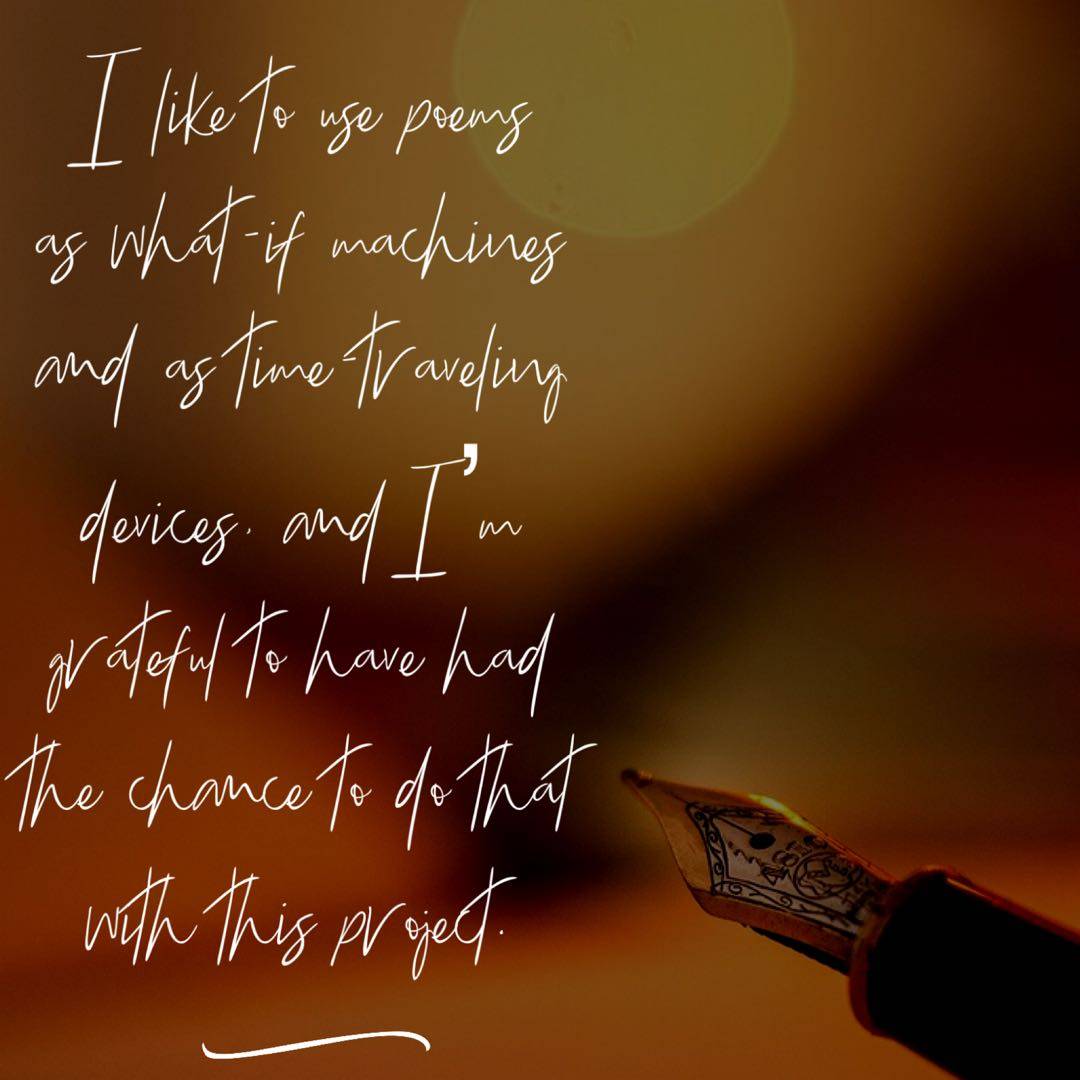 I like to use poems
as what-if machines
and as time-traveling
devices, and I'm
grateful to have had
the chance to do that
with this project.